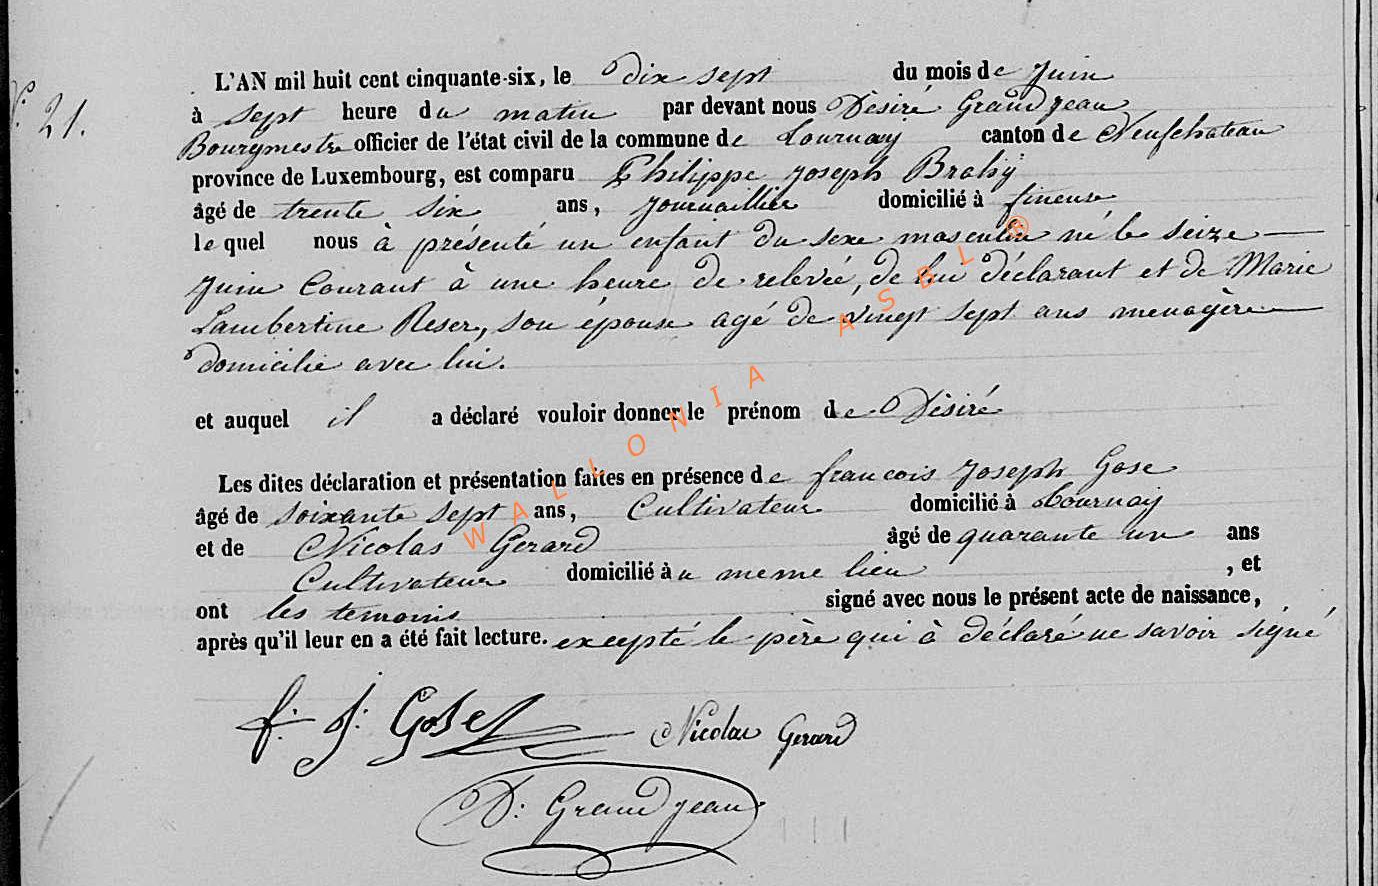 N° 21.
L'AN mil huit cent cinquante-six, le dix sept du mois de Juin
à sept heure du matin par devant nous Désiré Grandjean
Bourgmestre officier de l'état civil de la commune de Tournay canton de Neufchateau
province de Luxembourg, est comparu Philippe Joseph Brahy
âgé de trente six ans, journaillier domicilié à fineuse
lequel nous à présenté un enfant du sexe masculin né le seize
Juin Courant à une heure de relevée, de lui déclarant et de Marie
Lambertine Reser, son épouse agé de vingt sept ans menagère
domicilié avec lui.
et auquel il a déclaré vouloir donner le prénom de Désiré
Les dites déclaration et présentation faites en présence de francois Joseph Gose
âgé de soixante sept ans, Cultivateur domicilié à Tournay
et de Nicolas Gerard âgé de quarante un ans
Cultivateur domicilié à u meme lieu , et
ont les temoins signé avec nous le présent acte de naissance,
après qu'il leur en a été fait lecture. excepté le père qui à déclaré ne savoir signé
f: J: Gose Nicolas Gerard
D: Grandjean
WALLONIA ASBL ®